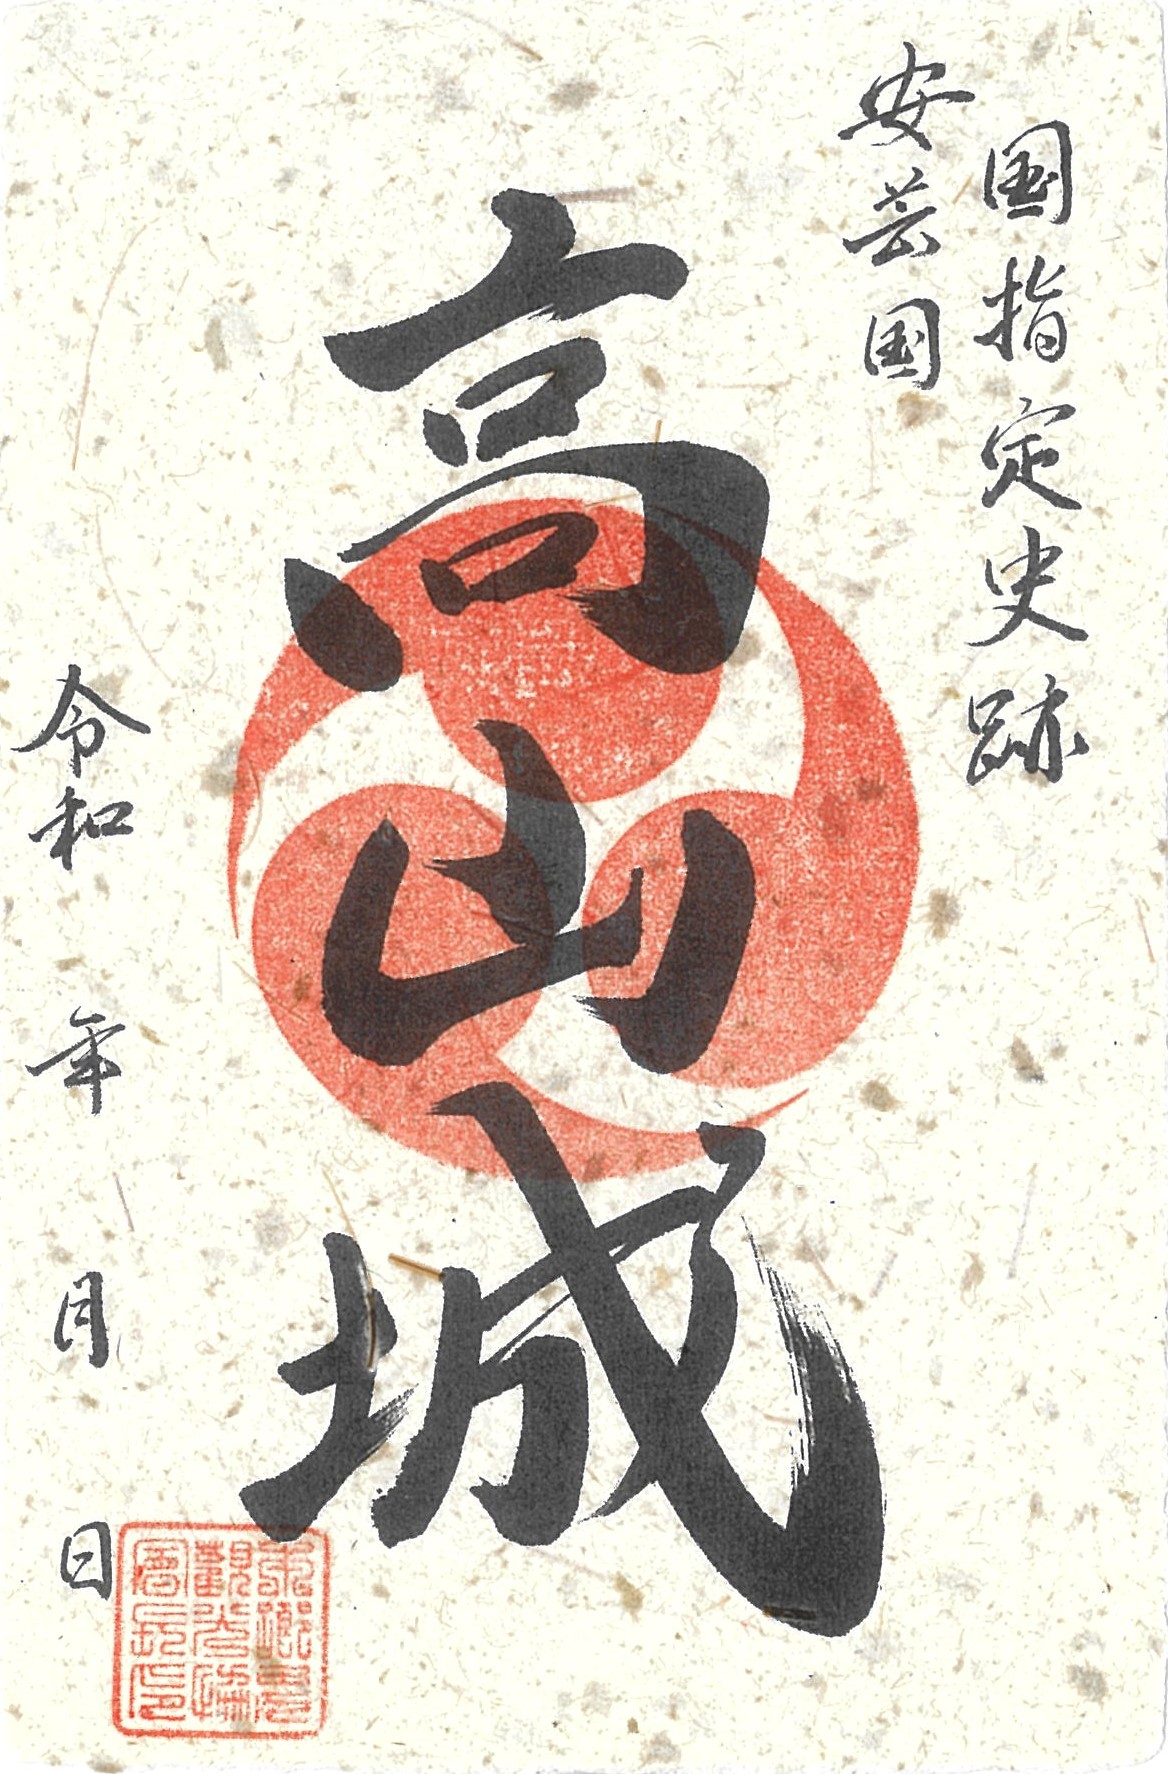 国指定史跡
安芸国
高山城
令和 年 月 日